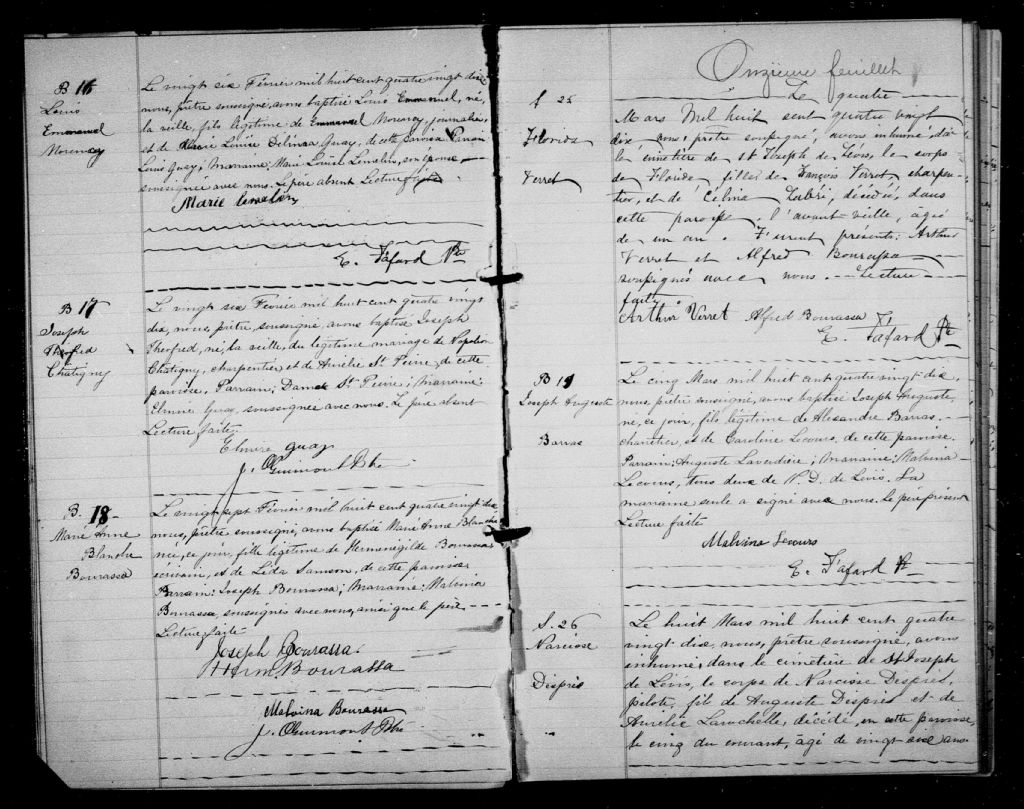 B 16
Louis
Emmanuel
Morency
Le vingt six Février mil huit cent quatre vingt dix
nous, prêtre soussigné, avons baptisé Louis Emmanuel, né,
la veille, fils légitime de Emmanuel Morency, journalier,
et de Marie Louise Delima Guay, de cette paroisse Parrain
Louis Guay; Marraine: Marie Louise Lemelin, son épouse
soussignée avec nous. Le père absent Lecture faite
Marie lemelin
E. Fafard Ptre
B 17
Joseph
Théofred
Chatigny
Le vingt six Février mil huit cent quatre vingt
dix, nous, prêtre soussigné, avons baptisé Joseph
Théofred, né, la veille, du légitime mariage de Napoléon
Chatigny, charpentier et de Aurélie St Pierre, de cette
paroisse, Parrain: St Pierre; Marraine:
Elmire Guay, soussignée avec nous. Le père absent
Lecture faite
Elmire guay
J. O Guimont Ptre
B. 18
Marie Anne
Blanche
Bourassa
Le vingt sept Février mil huit cent quatre vingt dix
nous, prêtre soussigné, avons baptisé Marie Anne Blanche
née, ce jour, fille légitime de Herménigilde Bourassa
écrivain, et de Léda Samson, de cette paroisse
Parrain: Joseph Bourassa; Marraine: Malvina
Bourassa, soussignés avec nous, ainsi que le père,
Lecture faite
Joseph Bourassa.
Herm. Bourassa
Malvina Bourassa
J. O Guimont Ptre
Onzième feuillet
S 25
Florida
Verret
Le quatre
Mars Mil huit cent quatre vingt
dix nous prêtre soussigné, avons inhumé, dans
le cimetière de St Joseph de Lévis, le corps
de Florida, fille de François Verret charpen-
tier, et de Célina Labrie, décédée, dans
cette paroisse, l'avant veille, agée
de un an. Furent présents: Arthur
Verret et Alfred Bourassa
soussignés avec nous. Lecture
faite
Arthur Verret Alfred Bourassa
E. Fafard Ptre
B 19
Joseph Auguste
Barras
Le cinq Mars mil huit cent quatre vingt dix,
nous, prêtre soussigné, avons baptisé Joseph Auguste,
né, ce jour, fils légitime de Alexandre Barras
charretier, et de Caroline Lecours, de cette paroisse.
Parrain: Auguste Laverdière; Marraine: Malvina
Lecours, tous deux de N. D. de Lévis. La
marraine seule a signé avec nous. Le père présent
Lecture faite
Malvina Lecours
E. Fafard Ptre
S. 26
Narcisse
Després
Le huit Mars mil huit cent quatre
vingt dix, nous, prêtre soussigné, avons
inhumé, dans le cimetière de St Joseph
de Lévis, le corps de Narcisse Després,
pilote, fils de Auguste Després et de
Aurélie Larochelle, décédé, en cette paroisse,
le cinq du courant, âgé de vingt six ans